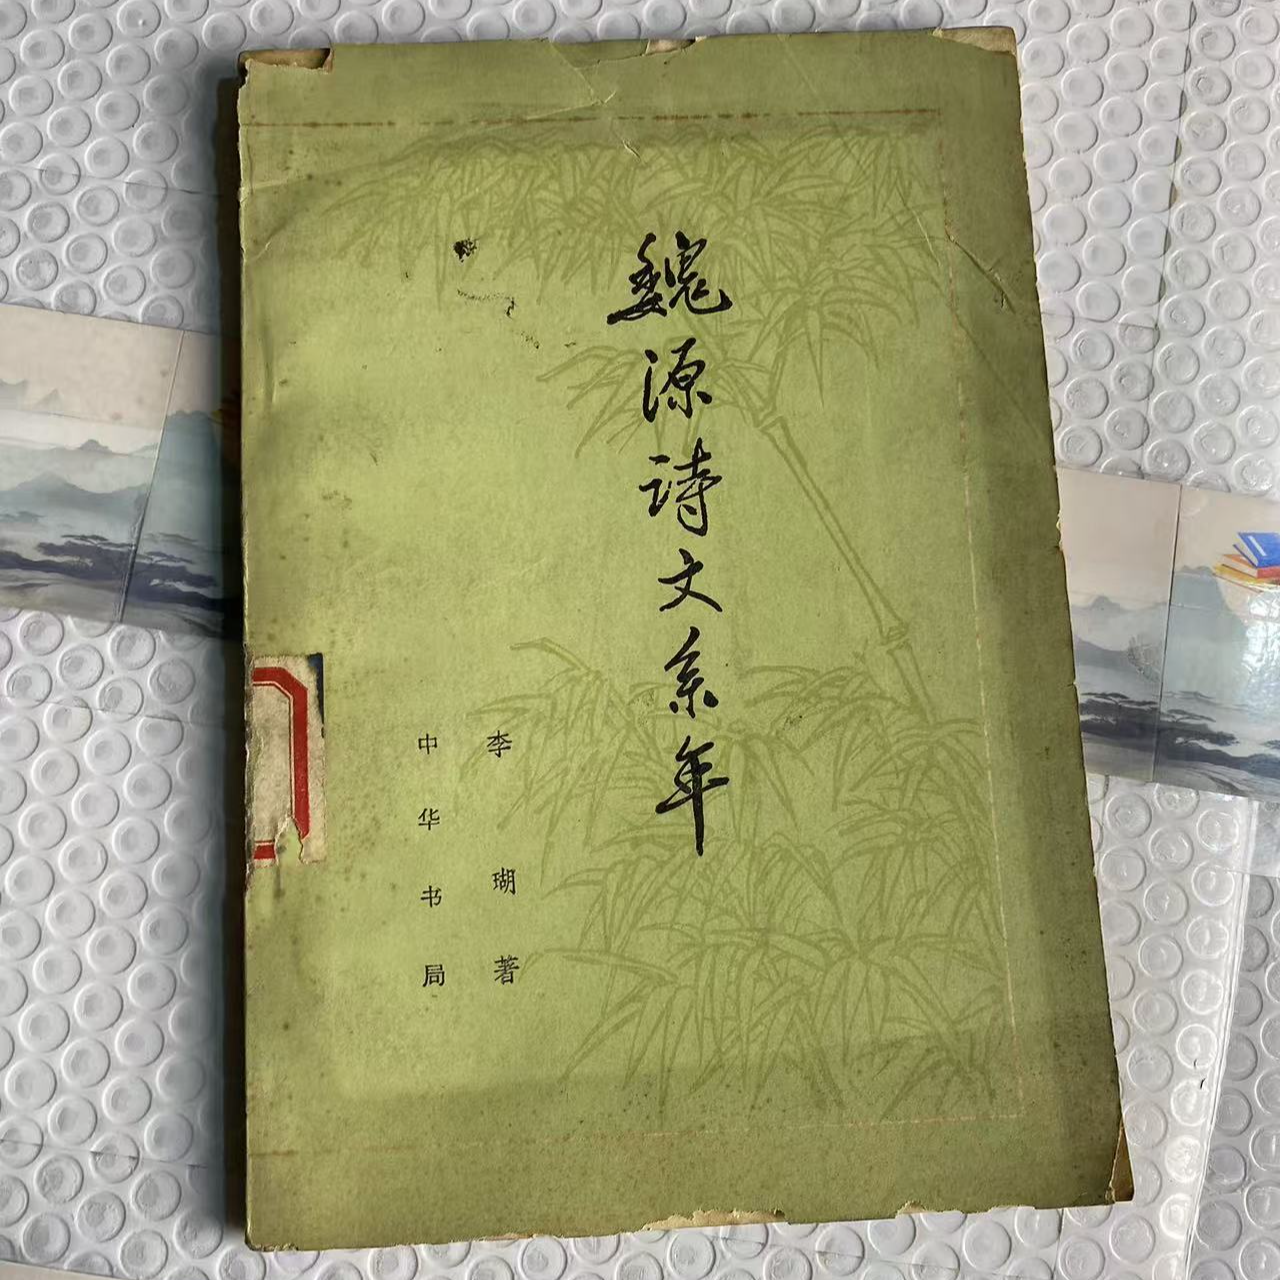 魏源诗文系年
李瑚著
中华书局